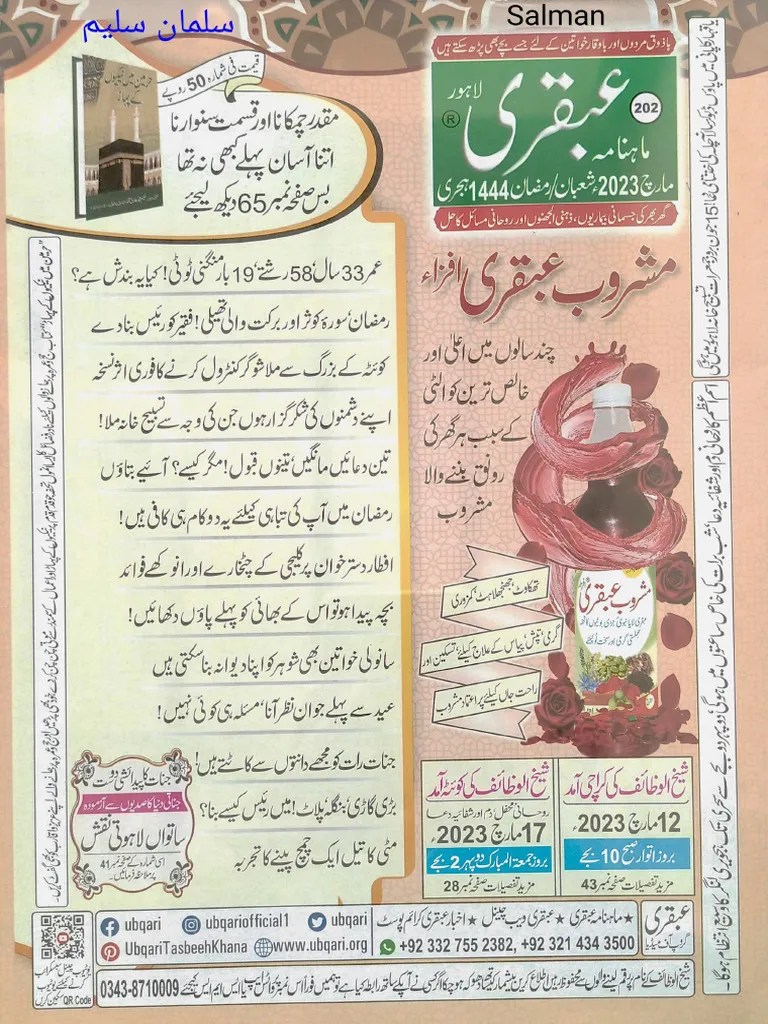 سلمان سلیم
Salman
باذوق مردوں اور باوقار خواتین کے لئے جسے بچے بھی پڑھ سکتے ہیں
لاہور
202
ماہنامہ
عبقری
®
مارچ 2023ء شعبان/رمضان 1444 ہجری
گھر بھر کی جسمانی بیماریوں، ذہنی الجھنوں اور روحانی مسائل کا حل
قیمت فی شمارہ 50 روپے
حرمین میں نیکیوں کے پہاڑ
مقدر چمکانا اور قسمت سنوارنا
اتنا آسان پہلے کبھی نہ تھا
بس صفحہ نمبر 65 دیکھ لیجئے
عمر 33 سال' 58 رشتے' 19 بار منگنی ٹوٹی! کیا یہ بندش ہے؟
رمضان' سورۂ کوثر اور برکت والی تھیلی! فقیر کو رئیس بنا دے
کوئٹہ کے بزرگ سے ملا شوگر کنٹرول کرنے کا فوری اثر نسخہ
اپنے دشمنوں کی شکر گزار ہوں جن کی وجہ سے تسبیح خانہ ملا!
تین دعائیں مانگیں' تینوں قبول! مگر کیسے؟ آئیے بتاؤں
رمضان میں آپ کی تباہی کیلئے یہ دو کام ہی کافی ہیں!
افطار دستر خوان پر کلیجی کے چٹخارے اور انوکھے فوائد
بچہ پیدا ہو تو اس کے بھائی کو پہلے پاؤں دکھائیں!
سانولی خواتین بھی شوہر کو اپنا دیوانہ بنا سکتی ہیں
عید سے پہلے جوان نظر آنا' مسئلہ ہی کوئی نہیں!
جنات رات کو مجھے دانتوں سے کاٹتے ہیں!
بڑی گاڑی' بنگلہ' پلاٹ! میں رئیس کیسے بنا؟
مٹی کا تیل ایک چمچ پینے کا تجربہ
جنات کا پیدائشی دوست
جناتی دنیا کا صدیوں سے آزمودہ
ساتواں لاہوتی نقش
اسی شمارہ کے صفحہ نمبر 41
پر ملاحظہ فرمائیں۔
مشروب عبقری افزاء
چند سالوں میں اعلیٰ اور
خالص ترین کوالٹی
کے سبب ہر گھر کی
رونق بننے والا
مشروب
تھکاوٹ' جھنجھلاہٹ' کمزوری
گرمی' تپش' پیاس کے علاج کیلئے' تسکین اور
راحت جاں کیلئے پر اعتماد مشروب
مشروب عبقری افزاء
شیخ الوظائف کی کراچی آمد
12 مارچ 2023ء
بروز اتوار صبح 10 بجے
مزید تفصیلات صفحہ نمبر 43
شیخ الوظائف کی کوئٹہ آمد
روحانی محفل' دم اور شفائیہ دعا
17 مارچ 2023ء
بروز جمعۃ المبارک دوپہر 2 بجے
مزید تفصیلات صفحہ نمبر 28
عبقری
گروپ آف میڈیا
★ ماہنامہ عبقری ★ عبقری ویب چینل ★ اخبار عبقری کرائم پوسٹ
ubqari ubqariofficial1 ubqari
UbqariTasbeehKhana www.ubqari.org +92 332 755 2382, +92 321 434 3500
QR Code
0343-8710009